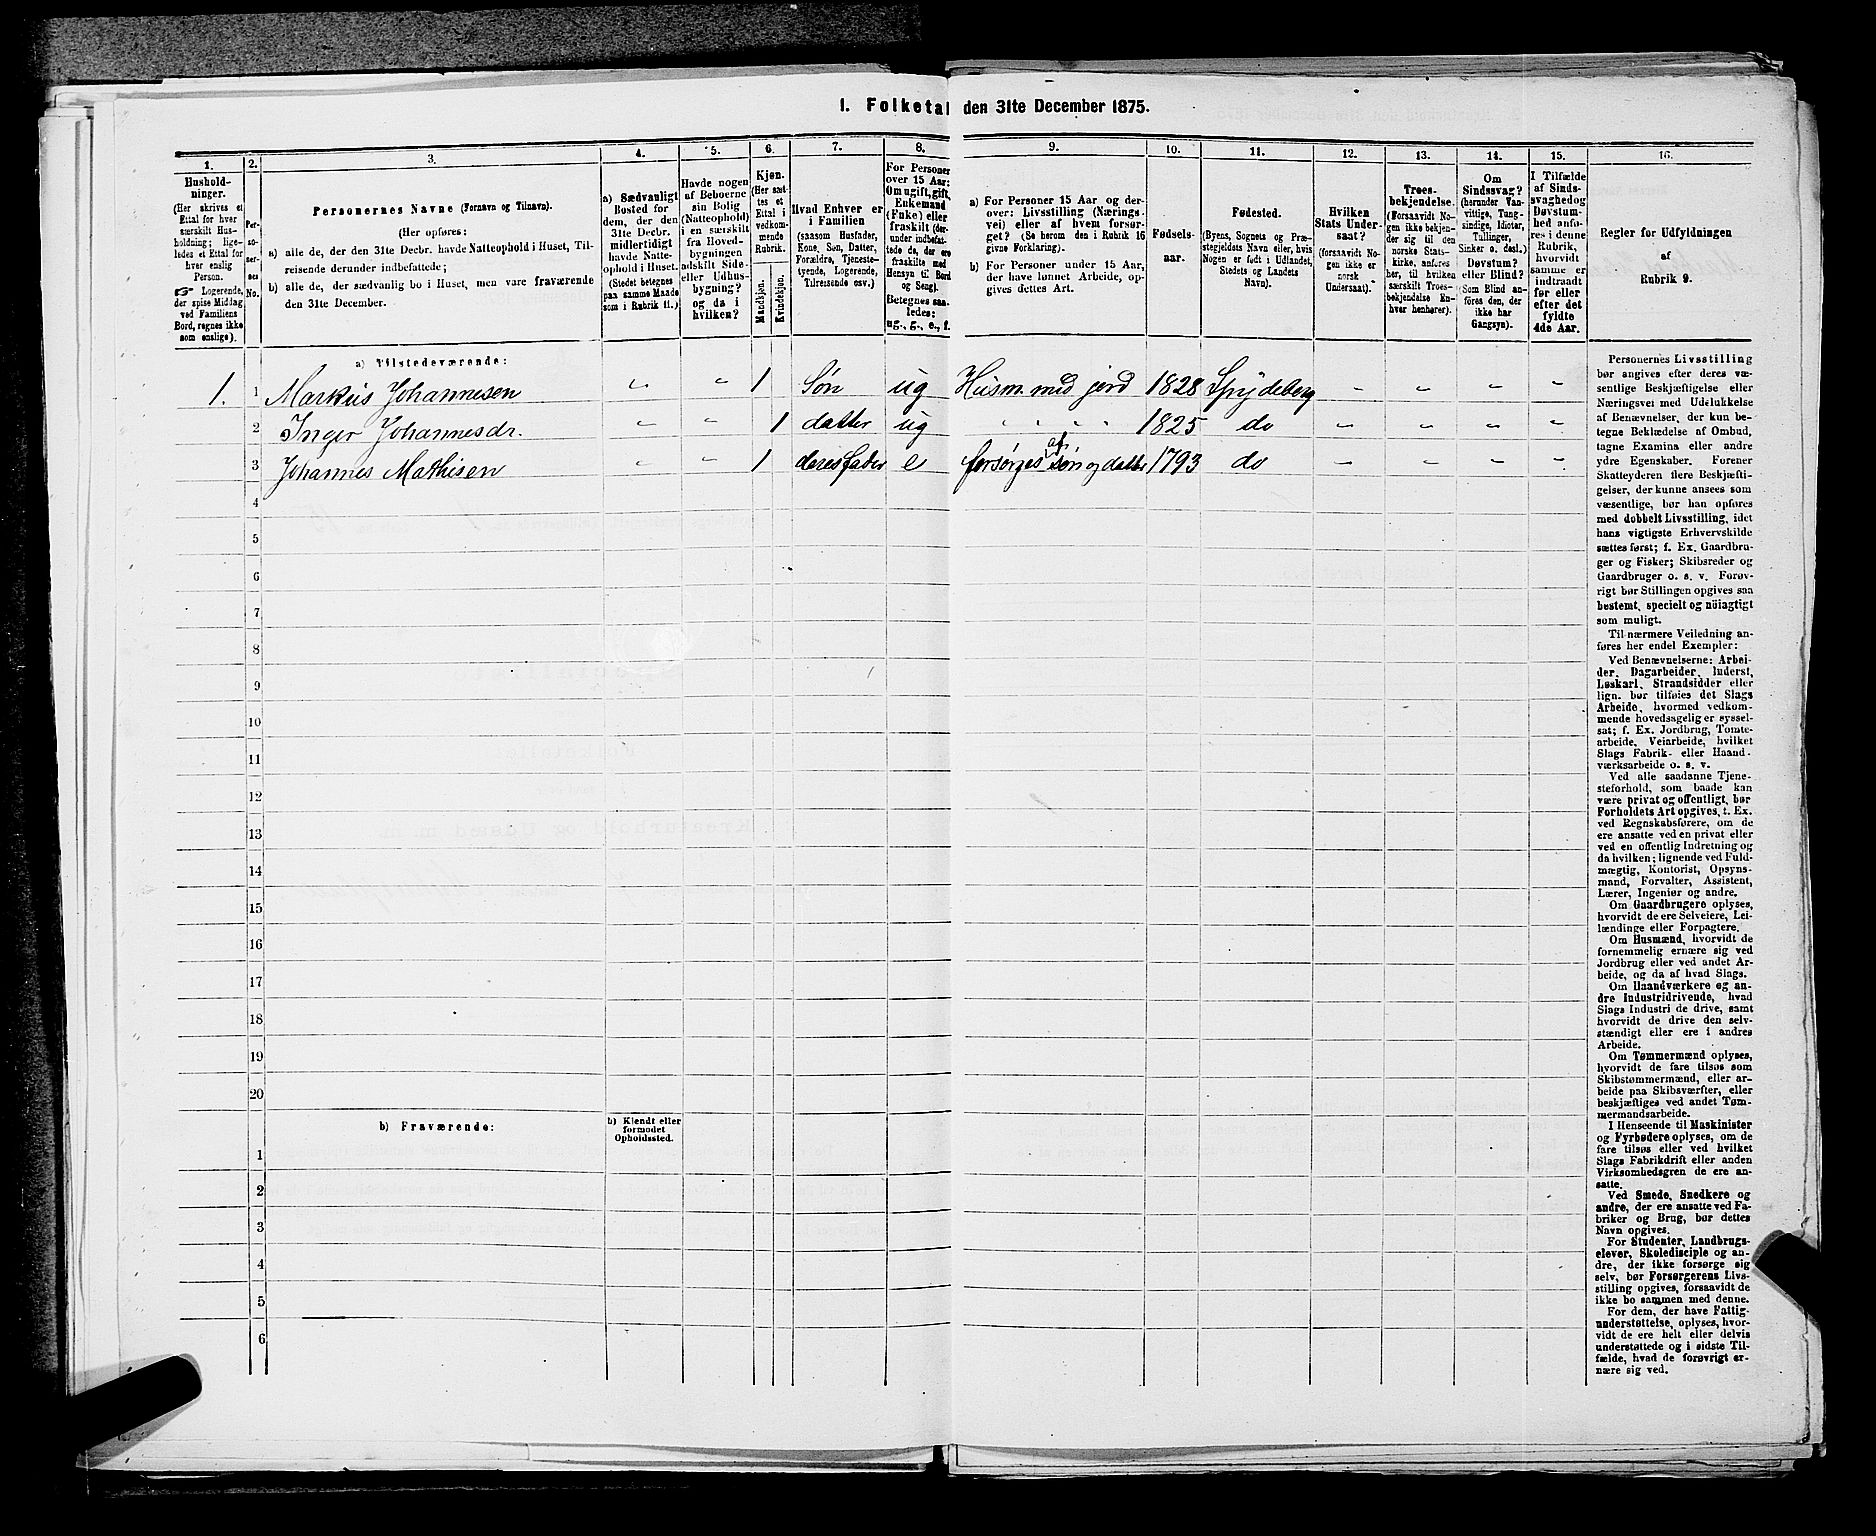 1. Folketal den 31te December 1875.
1.
2.
3.
4.
5.
6.
7.
8.
9.
10.
11.
12.
13.
14.
15.
16.
Hushold-
ninger.
(Her skrives et
Ettal for hver
særskilt Hus-
holdning; lige-
ledes et Ettal for
hver enslig
Person.
☞ Logerende,
der spise Middag
ved Familiens
Bord, regnes ikke
som enslige).
Per-
so-
ner-
nes
No.
Personernes Navne (Fornavn og Tilnavn).
(Her opføres:
a) alle de, der den 31te Decbr. havde Natteophold i Huset, Til-
reisende derunder indbefattede;
b) alle de, der sædvanlig bo i Huset, men vare fraværende
den 31te December.
a) Sædvanligt
Bosted for
dem, der den
31te Decbr.
midlertidigt
havde Natte-
ophold i Huset.
(Stedet betegnes
paa samme Maade
som i Rubrik 11.)
Havde nogen
af Beboerne
sin Bolig
(Natteophold)
i en særskilt
fra Hoved-
bygningen
adskilt Side-
eller Udhus-
bygning?
og da i
hvilken?
Kjøn.
(Her sæt-
tes et
Ettal i
vedkom-
mende
Rubrik.
Mandkjøn.
Kvindekjøn.
Hvad Enhver er
i Familien
(saasom Husfader,
Kone, Søn, Datter,
Forældre, Tjeneste-
tyende, Logerende,
Tilreisende osv.)
For Personer
over 15 Aar:
Om ugift, gift,
Enkemand
(Enke) eller
fraskilt (der-
under indbefat-
tede de, der ere
fraskilte med
Hensyn til Bord
og Seng).
Betegnes saa-
ledes:
ug., g., e., f.
a) For Personer 15 Aar og der-
over: Livsstilling (Nærings-
vei) eller af hvem forsør-
get? (Se herom den i Rubrik 16
givne Forklaring).
b) For Personer under 15 Aar,
der have lønnet Arbeide, op-
gives dettes Art.
Fødsels-
aar.
Fødested.
(Byens, Sognets og Præ-
stegjeldets Navn eller, hvis
Nogen er født i Udlandet,
Stedets og Landets
Navn).
Hvilken
Stats Under-
saat?
(forsaavidt No-
gen ikke er
norsk
Undersaat).
Troes-
bekjendelse.
(Forsaavidt No-
gen ikke bekjen-
der sig til den
norske Stats-
kirke, anføres
her, til hvilken
særskilt Troes-
bekjendelse En-
hver henhører).
Om
Sindssvag?
(herunder Van-
vittige, Tung-
sindige, Idioter,
Tullinger,
Sinker o. desl.)
Døvstum?
eller Blind?
(Som Blind an-
føres den, der
ikke har
Gangsyn).
I Tilfælde
af Sinds-
svaghed og
Døvstum-
hed anfø-
res i denne
Rubrik,
hvorvidt
samme er
indtraadt
før eller
efter det
fyldte
4de Aar.
Regler for Udfyldningen
af
Rubrik 9.
a) Tilstedeværende:
1. 1 Markus Johannesen " " 1 Søn ug Husm. med jord 1828 Spydeberg " " " "
2 Inger Johannesdr. " " 1 datter ug " " " " 1825 do " " " "
3 Johannes Mathisen " " 1 deres fader e forsørges af søn og datter 1793 do " " " "
4
5
6
7
8
9
10
11
12
13
14
15
16
17
18
19
20
b) Fraværende:
b) Kjendt eller
formodet
Opholdssted.
1
2
3
4
5
6
Personernes Livsstilling
bør angives efter deres væ-
sentlige Beskjæftigelse eller
Næringsvei med Udelukkelse
af Benævnelser, der kun be-
tegne Beklædelse af Ombud,
tagne Examina eller andre
ydre Egenskaber. Forener
Skatteyderen flere Beskjæfti-
gelser, der kunne ansees som
væsentlige, bør han opføres
med dobbelt Livsstilling, idet
hans vigtigste Erhvervskilde
sættes først; f. Ex. Gaardbru-
ger og Fisker; Skibsreder og
Gaardbruger o. s. v. Forøv-
rigt bør Stillingen opgives saa
bestemt, specielt og nøiagtigt
som muligt.
Til nærmere Veiledning an-
føres her endel Exempler:
Ved Benævnelserne: Arbei-
der, Dagarbeider, Inderst,
Løskarl, Strandsidder eller
lign. bør tilføies det Slags
Arbeide, hvormed vedkom-
mende hovedsagelig er syssel-
sat; f. Ex. Jordbrug, Tomte-
arbeide, Veiarbeide, hvilket
Slags Fabrik- eller Haand-
værksarbeide o. s. v.
Ved alle saadanne Tjene-
steforhold, som baade kan
være privat og offentligt, bør
Forholdets Art opgives, t. Ex.
ved Regnskabsførere, om de
ere ansatte ved en privat eller
ved en offentlig Indretning og
da hvilken; lignende ved Fuld-
mægtig, Kontorist, Opsyns-
mand, Forvalter, Assistent,
Lærer, Ingeniør og andre.
Om Gaardbrugere oplyses,
hvorvidt de ere Selveiere, Lei-
lændinge eller Forpagtere.
Om Husmænd, hvorvidt de
fornemmelig ernære sig ved
Jordbrug eller ved andet Ar-
beide, og da af hvad Slags.
Om Haandværkere og an-
dre Industridrivende, hvad
Slags Industri de drive, samt
hvorvidt de drive den selv-
stændigt eller ere i andres
Arbeide.
Om Tømmermænd oplyses,
hvorvidt de fare tilsøs som
Skibstømmermænd, eller ar-
beide paa Skibsværfter, eller
beskjæftiges ved andet Tøm-
mermandsarbeide.
I Henseende til Maskinister
og Fyrbødere oplyses, om de
fare tilsøs eller ved hvilket
Slags Fabrikdrift eller anden
Virksomhedsgren de ere an-
satte.
Ved Smede, Snedkere og
andre, der ere ansatte ved Fa-
briker og Brug, bør dettes
Navn opgives.
For Studenter, Landbrugs-
elever, Skoledisciple og an-
dre, der ikke forsørge sig
selv, bør Forsørgerens Livs-
stilling opgives, forsaavidt de
ikke bo sammen med denne.
For dem, der have Fattig-
understøttelse, oplyses, hvor-
vidt de ere helt eller delvis
understøttede og i sidste Til-
fælde, hvad de forøvrigt er-
nære sig ved.